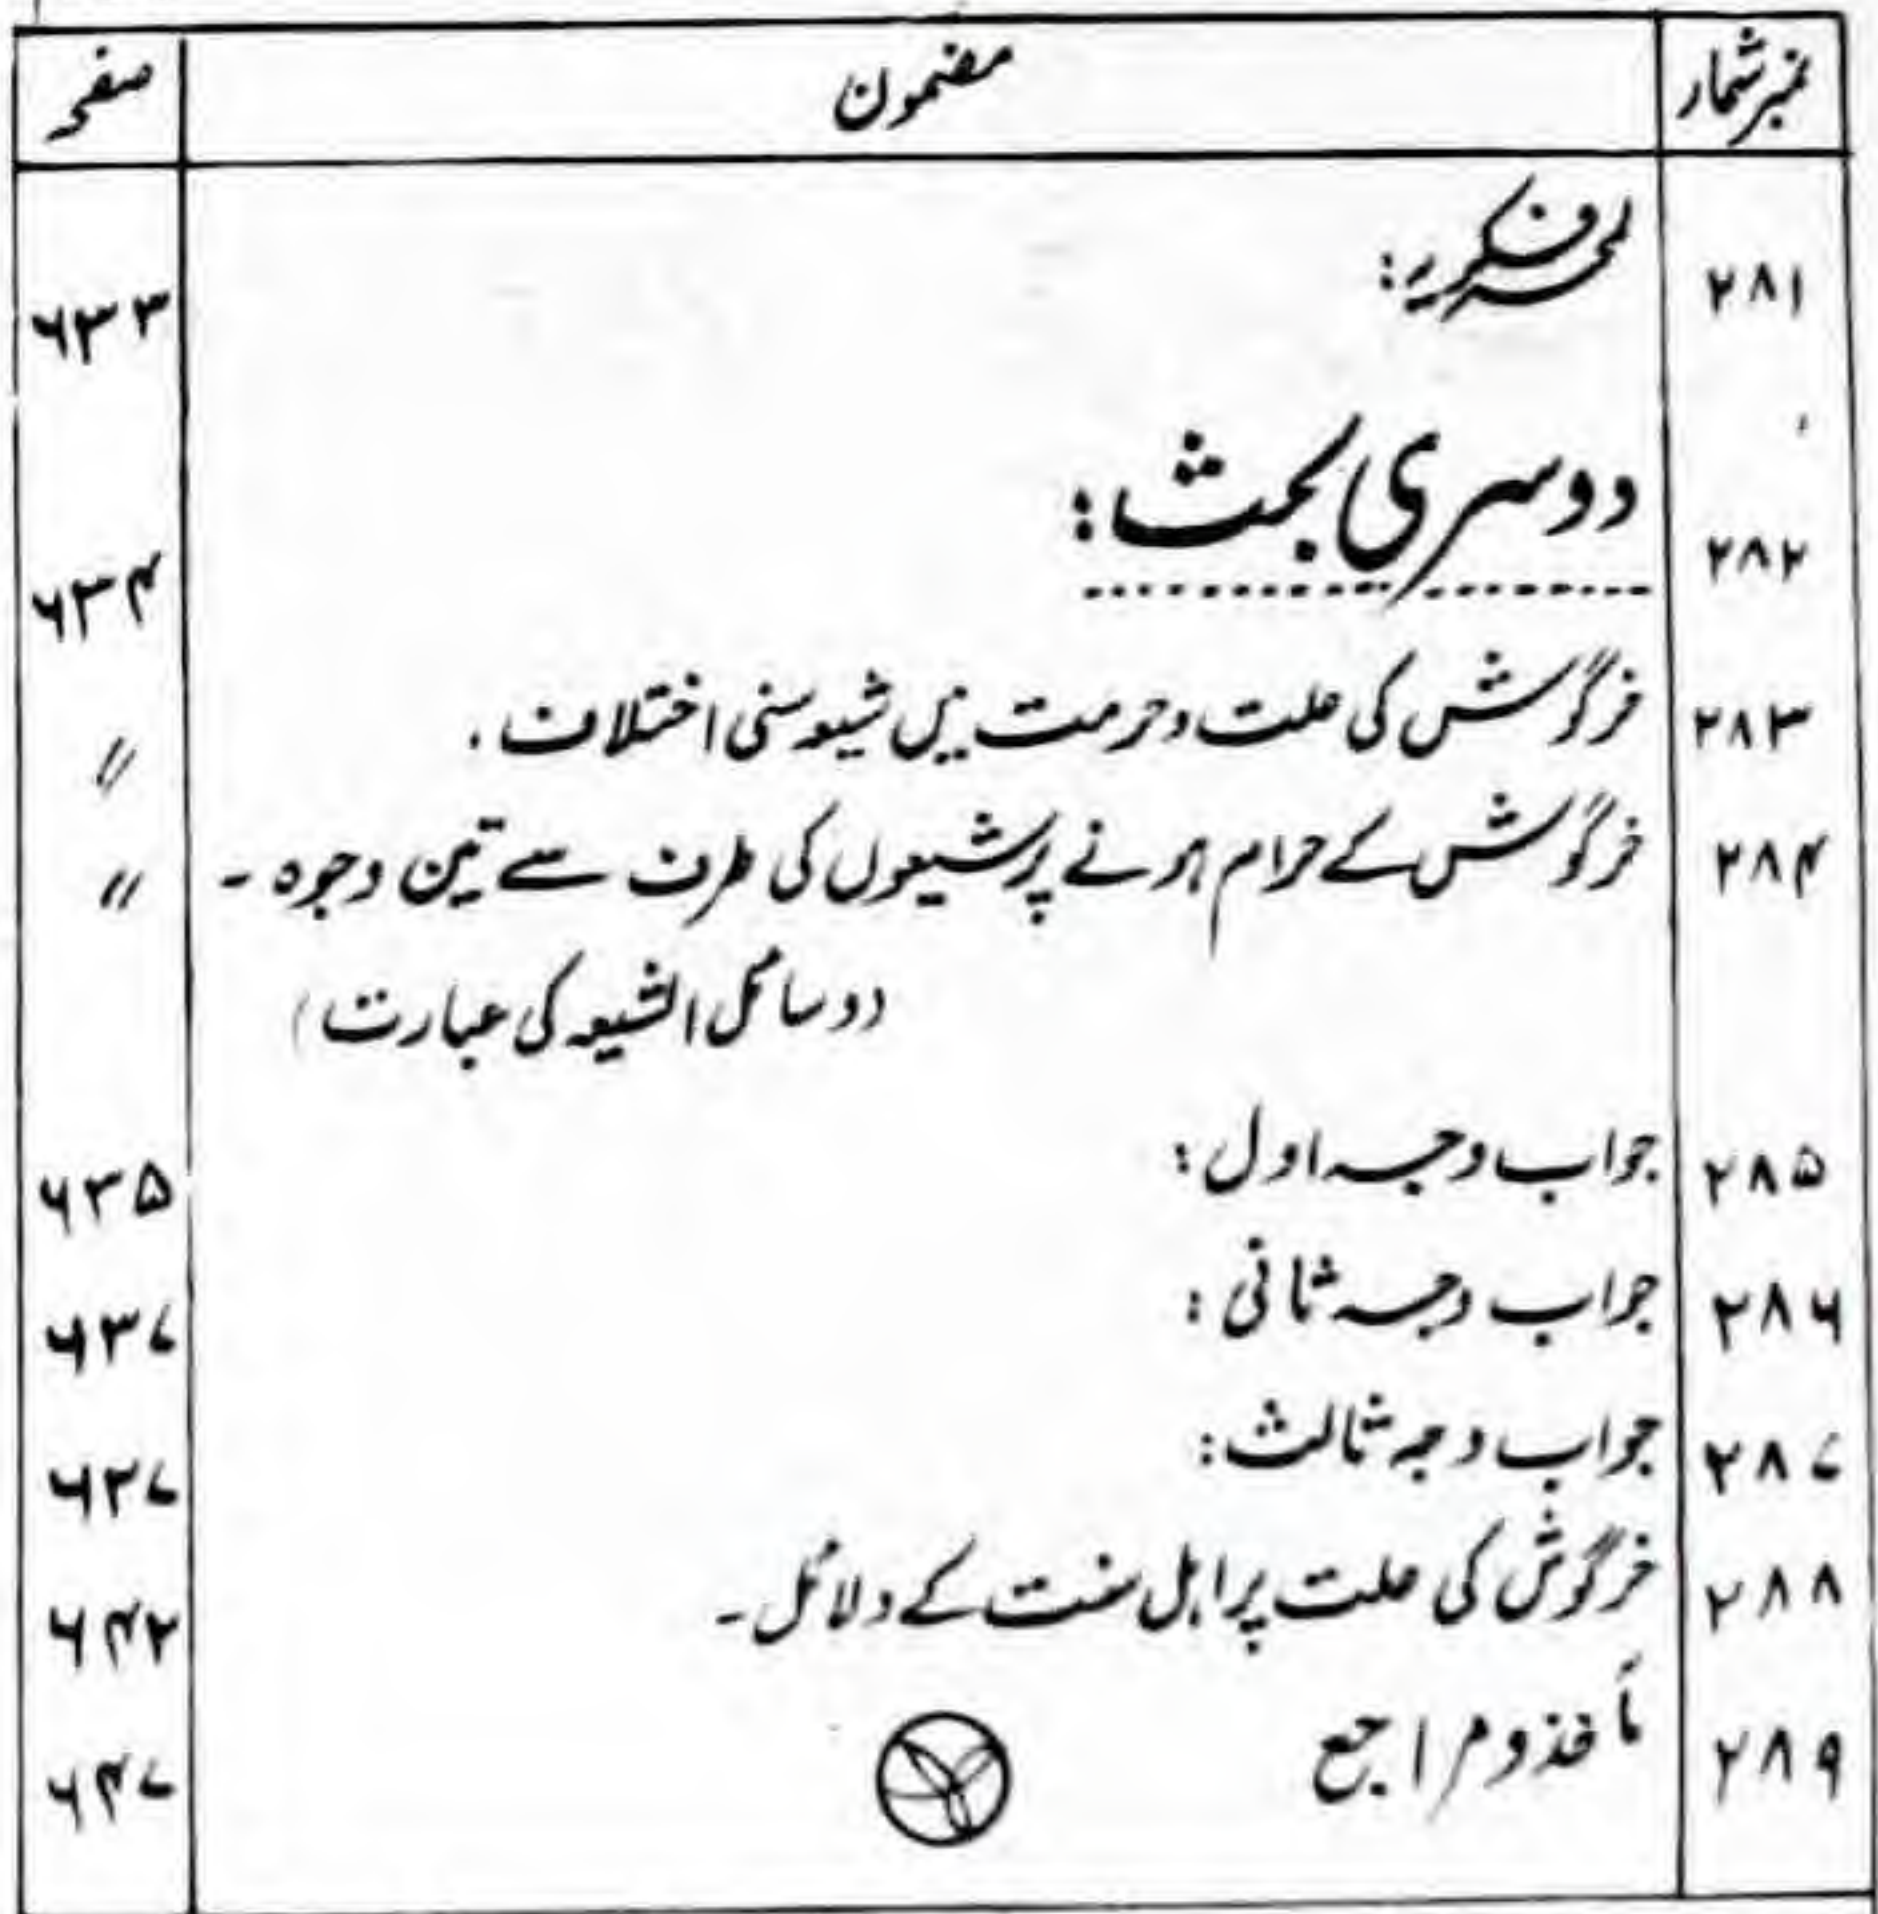 نمبر شمار مضمون صفحہ
۲۸۱ لمحہ فکریہ: ۶۳۳
۲۸۲ دوسری بحث: ۶۳۴
۲۸۳ خرگوش کی حلت و حرمت میں شیعہ سنی اختلاف. 〃
۲۸۴ خرگوش کے حرام ہونے پر شیعوں کی طرف سے تین وجوہ - 〃
(وسائل الشیعہ کی عبارت)
۲۸۵ جواب وجہ اول: ۶۳۵
۲۸۶ جواب وجہ ثانی: ۶۳۷
۲۸۷ جواب وجہ ثالث: ۶۳۷
۲۸۸ خرگوش کی حلت پر اہل سنت کے دلائل - ۶۴۲
۲۸۹ مأخذ و مراجع ۶۴۷